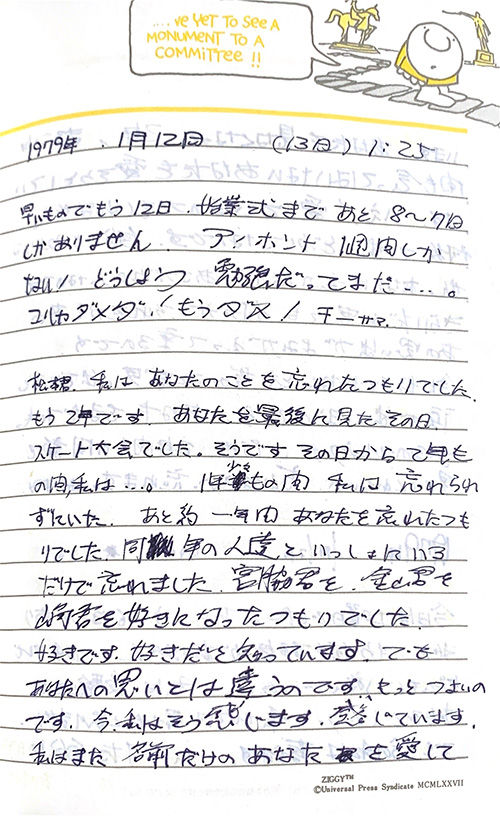 ...'VE YET TO SEE A
MONUMENT TO A
COMMITTEE !!
1979年 . 1月12日 (13日) 1:25
早いものでもう12日. 始業式まで あと 8〜7日
しかありません. アーホント 1週間しか
ない! どうしよう 勉強だってまだ...。
ダメダ! もう ダメ!
松君. 私は あなたのことを 忘れたつもりでした.
もう 2年です. あなたを最後に見た その日.
スケート大会でした。そうです その日から 2年も
の間,私は...。 1年少々もの間 私は 忘れられ
ずにいた. あと約 一年間 あなたを忘れたつも
りでした. 同年の人達と いっしょにいる
だけで忘れました. 宮脇君を. 金山君を
山崎君を好きになったつもりでした.
好きです. 好きだと思っています. でも
あなたへの思いとは違うのです. もっと つよいの
です. 今. 私はそう感じます. 感じています.
私はまた 名前だけの あなたを愛して
ZIGGY™
©Universal Press Syndicate MCMLXXVII